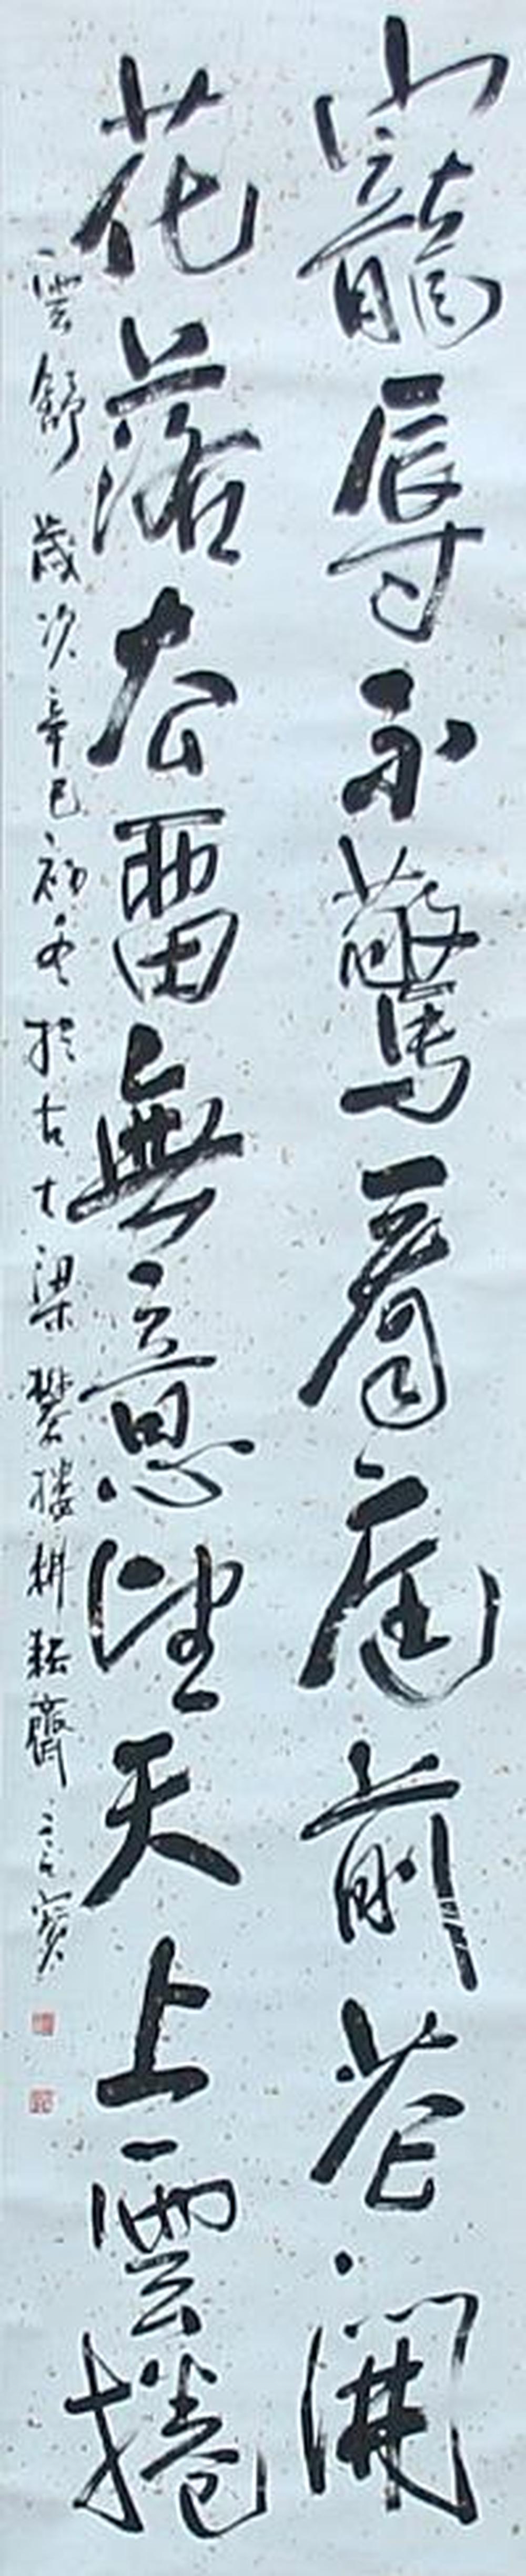 寵辱不驚看庭前花開
花落去留無意望天上雲捲
雲舒 歲次辛巳初冬於古大梁樊樓耕耘齋言寶